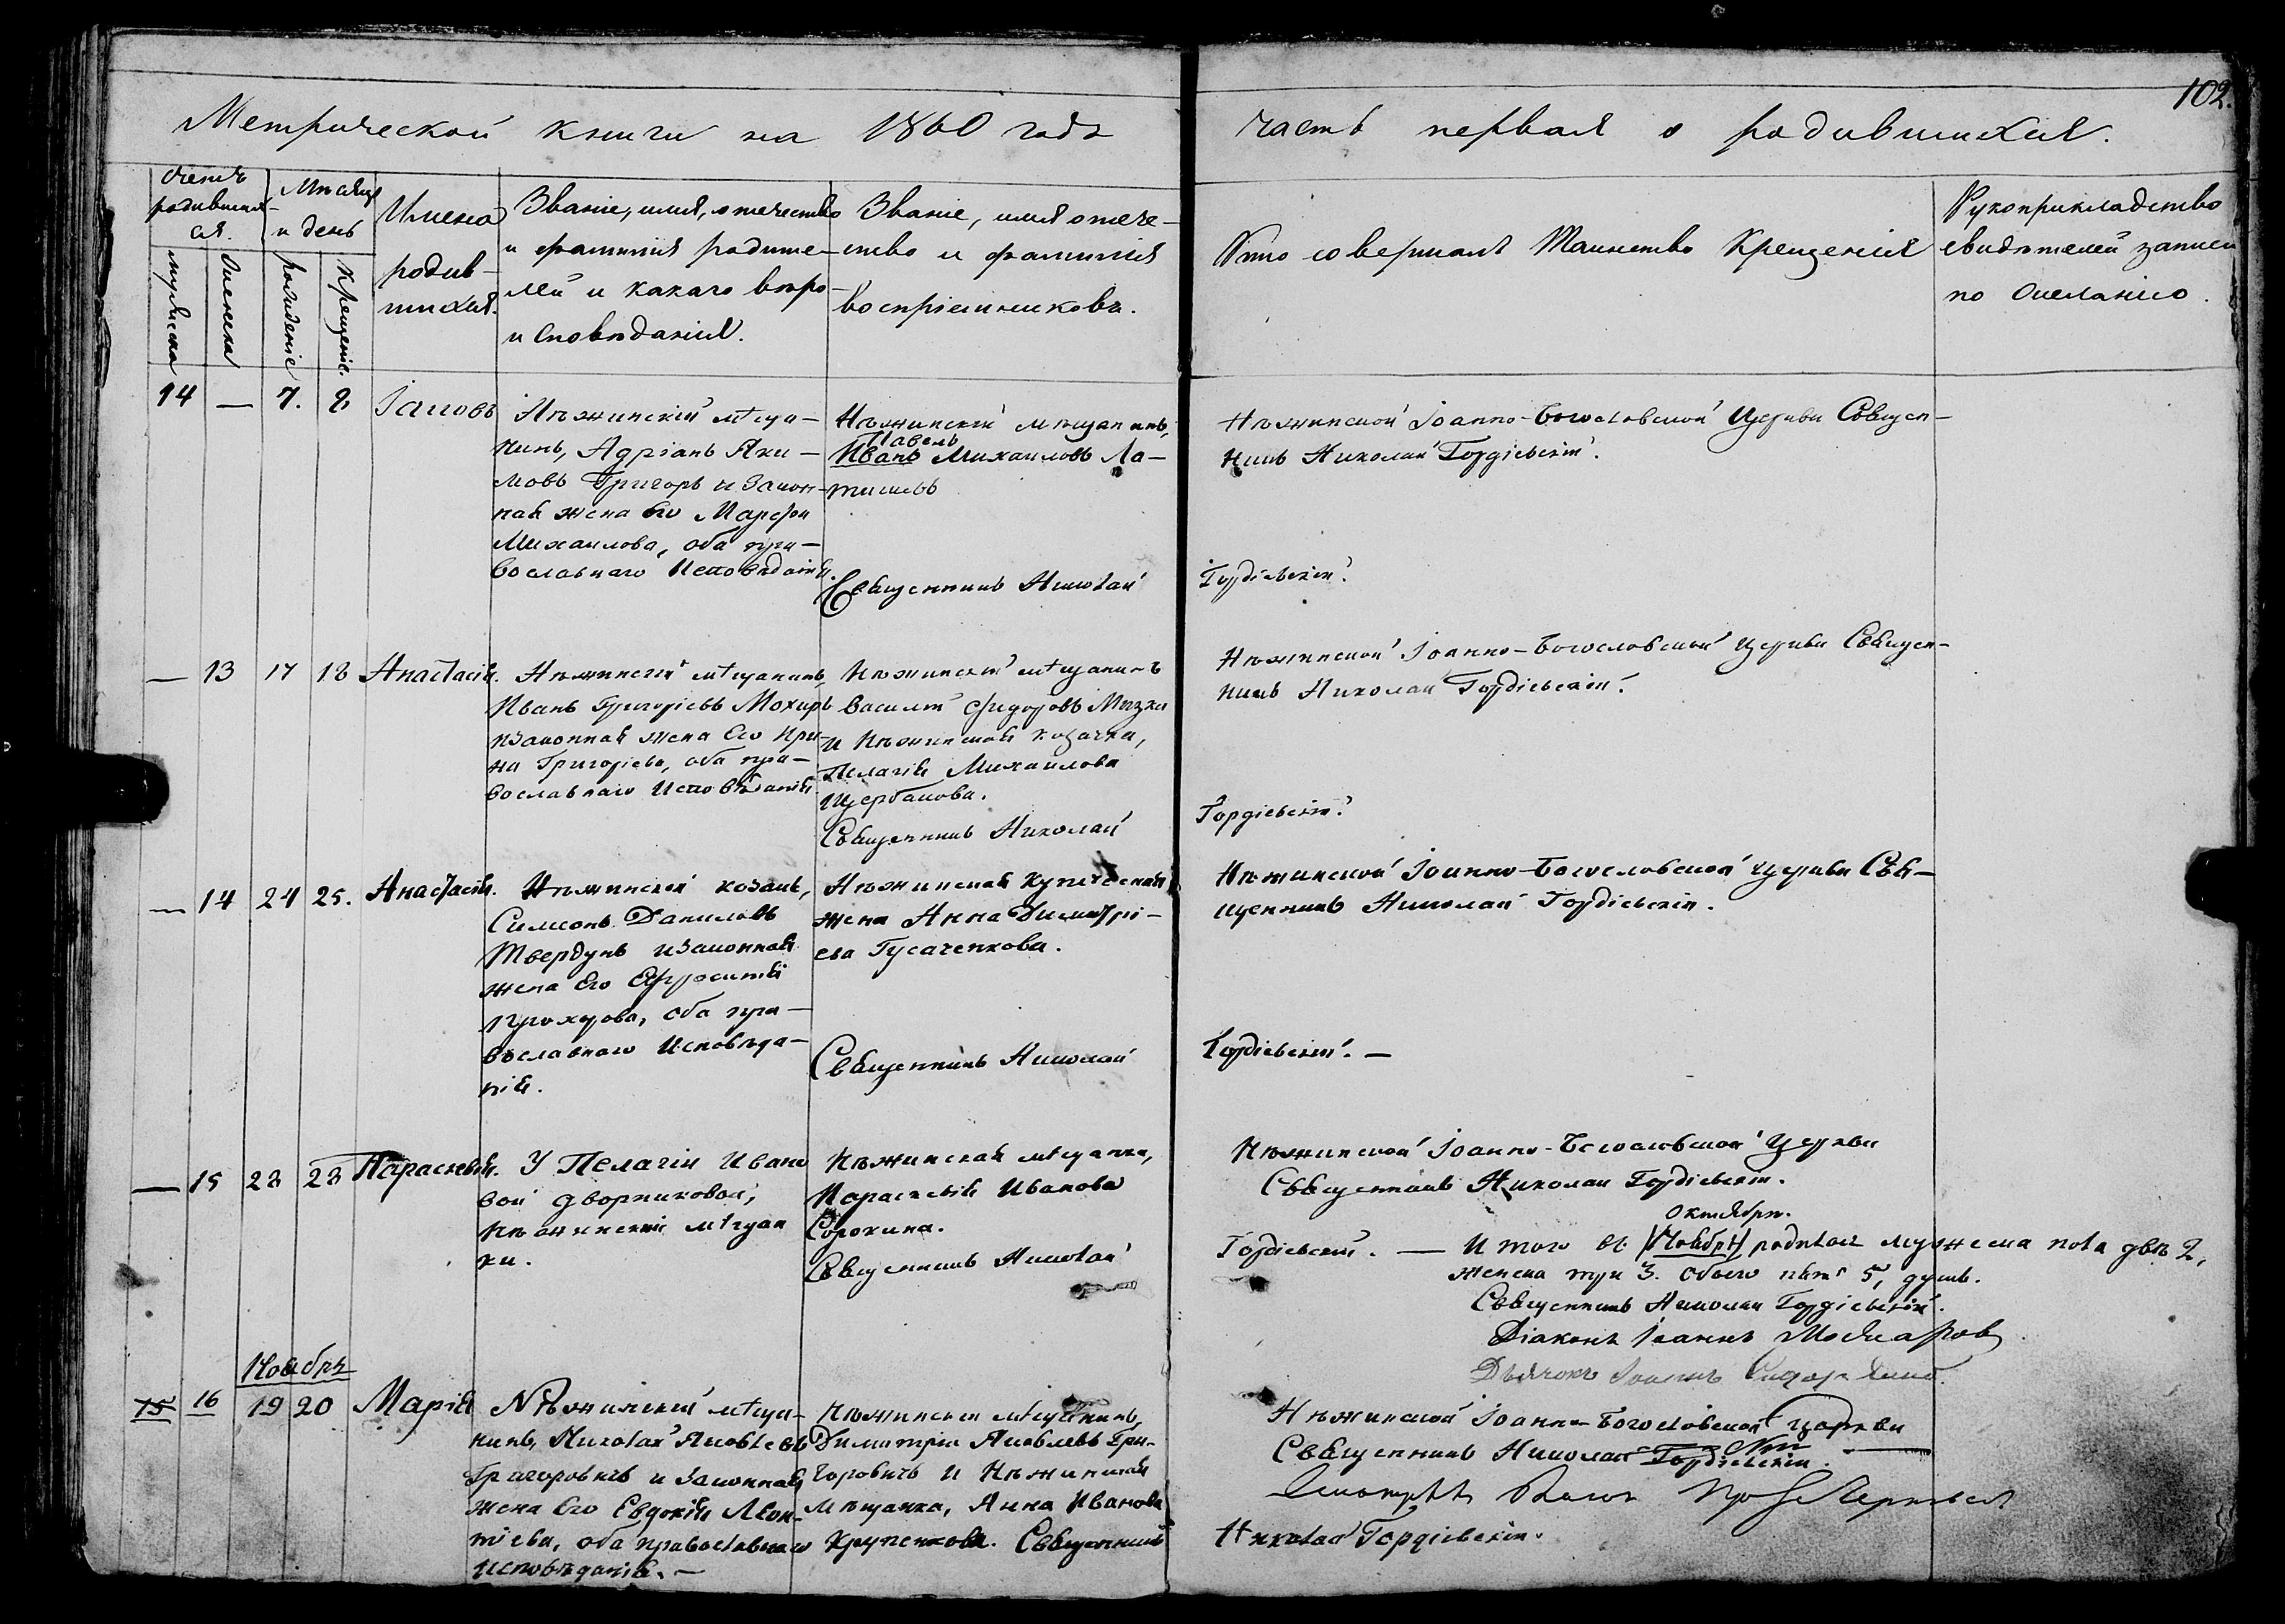 102.
Метрической книги на 1860 годъ
часть первая о родившихся.
Счетъ родившихся.
мужеска
женска
Мѣсяцъ и день
рожденіе
Крещеніе.
Имена
родив-
шихся.
Званіе, имя, отечество
и фамилія родите-
лей и какаго вѣро-
исповѣданія.
Званіе, имя отече-
ство и фамилія
воспріемниковъ.
Кто совершалъ Таинство Крещенія
Рукоприкладство
свидѣтелей записи
по желанію.
14 — 7. 8 Іаковъ
Нѣжинскій мѣща-
нинъ, Адріанъ Яки-
мовъ Григорь и Закон-
ная жена его Марфа
Михаилова, оба пра-
вославнаго Исповѣданія.
Нѣжинскій мѣщанинъ,
Павелъ
Иванъ Михаиловъ Ла-
Священникъ Николай
Нѣжинской Іоанно-Богословской Церкви Священ-
никъ Николай Гордіевскій.
Гордіевскій.
— 13 17 18 Анастасія.
Нѣжинскій мѣщанинъ,
Иванъ Григоріевъ Мохиръ
и Законная жена Его Ири-
на Григоріева, оба пра-
вославнаго Исповѣданія
Нѣжинскій мѣщанинъ
Василій Фидоровъ
и Нѣжинская козачка,
Пелагія Михаилова
Щербакова.
Священникъ Николай
Нѣжинской Іоанно-Богословской Церкви Священ-
никъ Николай Гордіевскій.
Гордіевскій.
— 14 24 25. Анастасія.
Нѣжинской козакъ,
Симеонъ Даниловъ
Твердунъ и Законная
жена Его Ефросинія
Прохорова, оба пра-
вославнаго Исповѣда-
нія.
Нѣжинская Купеческая
жена Анна Димитрі-
ева Гусаченкова.
Священникъ Николай
Нѣжинской Іоанно-Богословской Церкви Свя-
щенникъ Николай Гордіевскій.
Гордіевскій. —
— 15 28 28 Параскевія.
У Пелагіи Ивано
вой Дворниковой,
Нѣжинскій мѣщан
ки.
Нѣжинская мѣщанка,
Параскевія Иванова
Сорокина.
Священникъ Николай
Нѣжинской Іоанно-Богословской Церкви
Священникъ Николай Гордіевскій.
Октября.
Гордіевскій. — Итого въ (Ноября) родилось мужеска пола двѣ 2,
женска три 3. Обоего пола 5, душъ.
Священникъ Николай Гордіевскій.
Діаконъ Іоаннъ
Дьячокъ Іоаннъ
Ноября
15 16 19 20 Марія
Нѣжинскій мѣща-
нинъ, Николай Яковлевъ
Григоровичъ и Законная
жена Его Евдокія Леон-
тіева, оба православнаго
Исповѣданія. —
Нѣжинскій мѣщанинъ,
Димитрій Яковлевъ Гри-
горовичъ и Нѣжинская
Мѣщанка, Анна Иванова
Крупенкова. Священникъ
Нѣжинской Іоанно-Богословской Церкви
Священникъ Николай Гордіевскій.
Николай Гордіевскій.